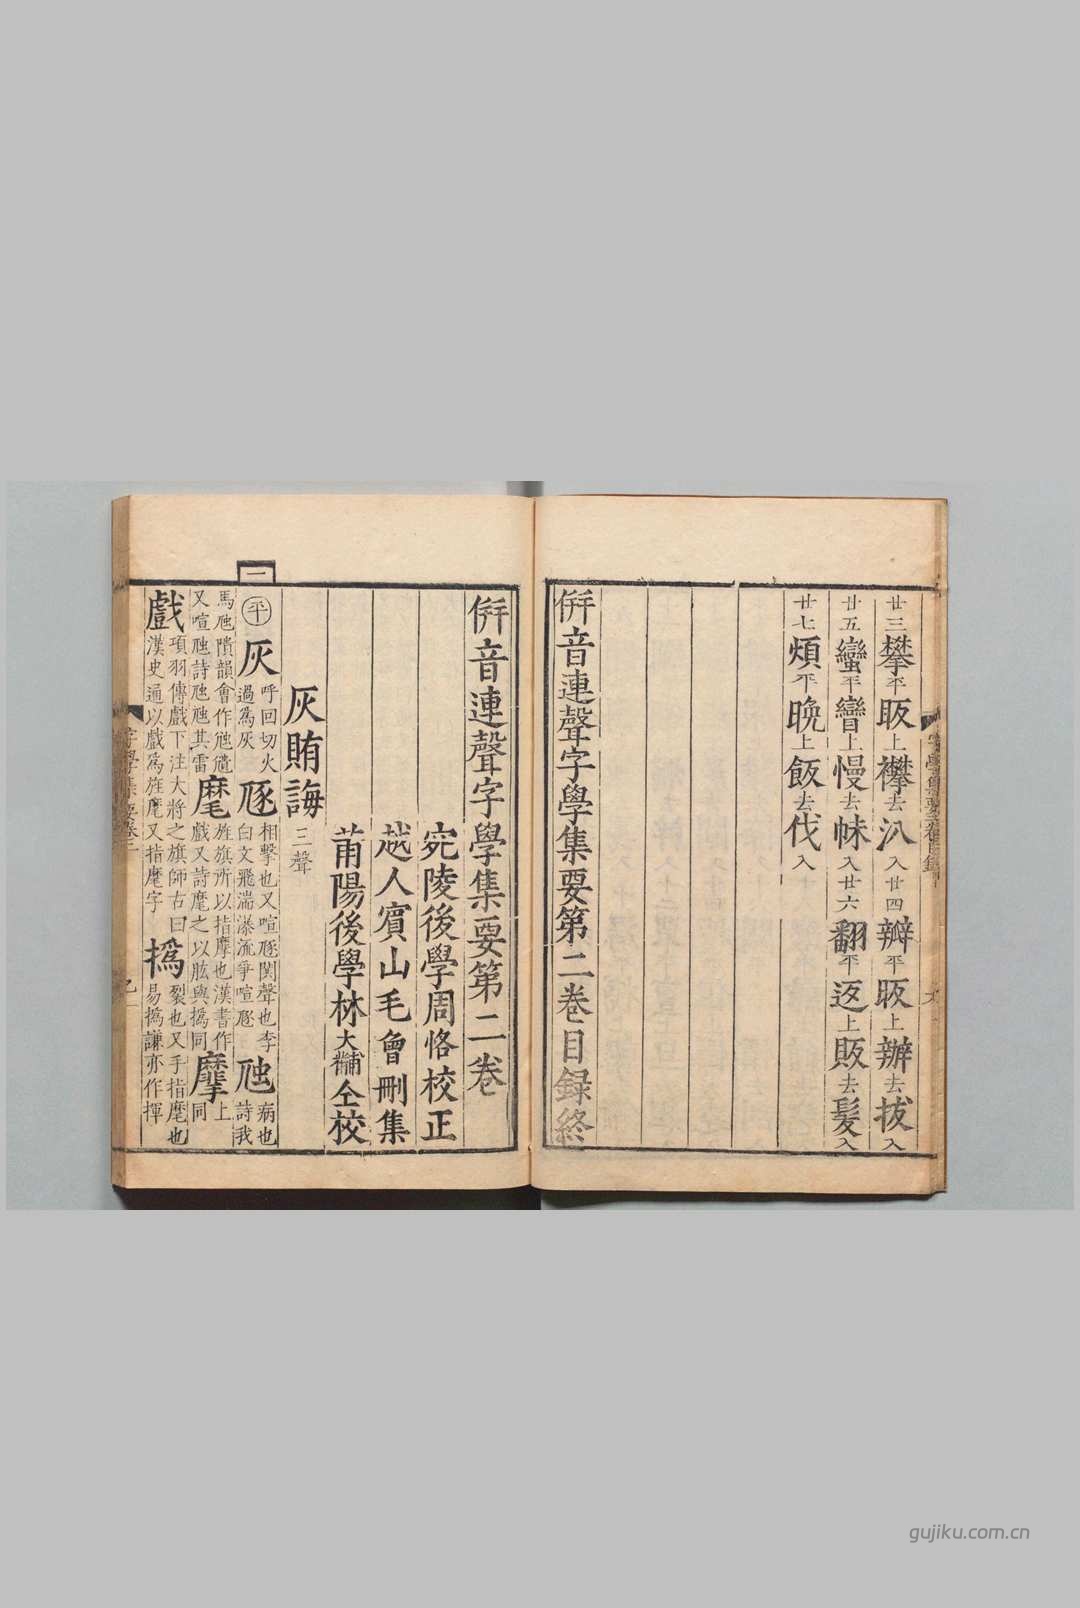 廿三攀平眅上襻去汃入廿四辬平昄上辦去拔入
廿五蠻平矕上慢去帓入廿六翻平返上販去髮入
廿七煩平晚上飯去伐入
併音連聲字學集要第二卷目録終
併音連聲字學集要第二卷
宛陵後學周恪校正
越人賓山毛會刪集
莆陽後學林大黼仝校
灰賄誨三聲
一
平灰呼回切火過爲灰
相擊也又喧豗鬨聲也李白文飛湍瀑流爭喧豗
虺病也詩我馬虺隤韻會作
又喧虺詩虺虺其雷
麾旌旗所以指摩也漢書作戲又詩麾之以肱與撝同
摩上同
戲項羽傳戲下注大將之旗師古曰漢史通以戲爲旌麾又指麾字
撝裂也又手指麾也易撝謙亦作揮
gujiku.com.cn